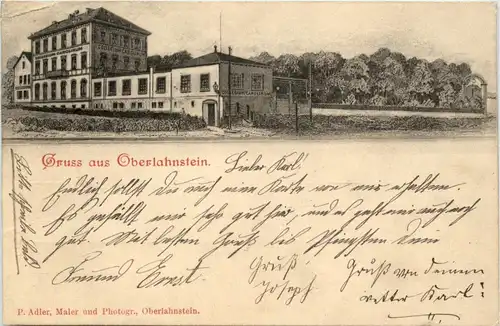 Gruss aus Oberlahnstein.
Lieber Karl!
Endlich sollst du auch eine Karte von mir erhalten.
Es gefällt mir sehr gut hier, und es geht mir auch noch
gut. Mit besten Gruß bis Pfingsten dein
Freund Ernst.
Gruß
Joseph
Gruß von deinem
vetter Karl!
P. Adler, Maler und Photogr., Oberlahnstein.